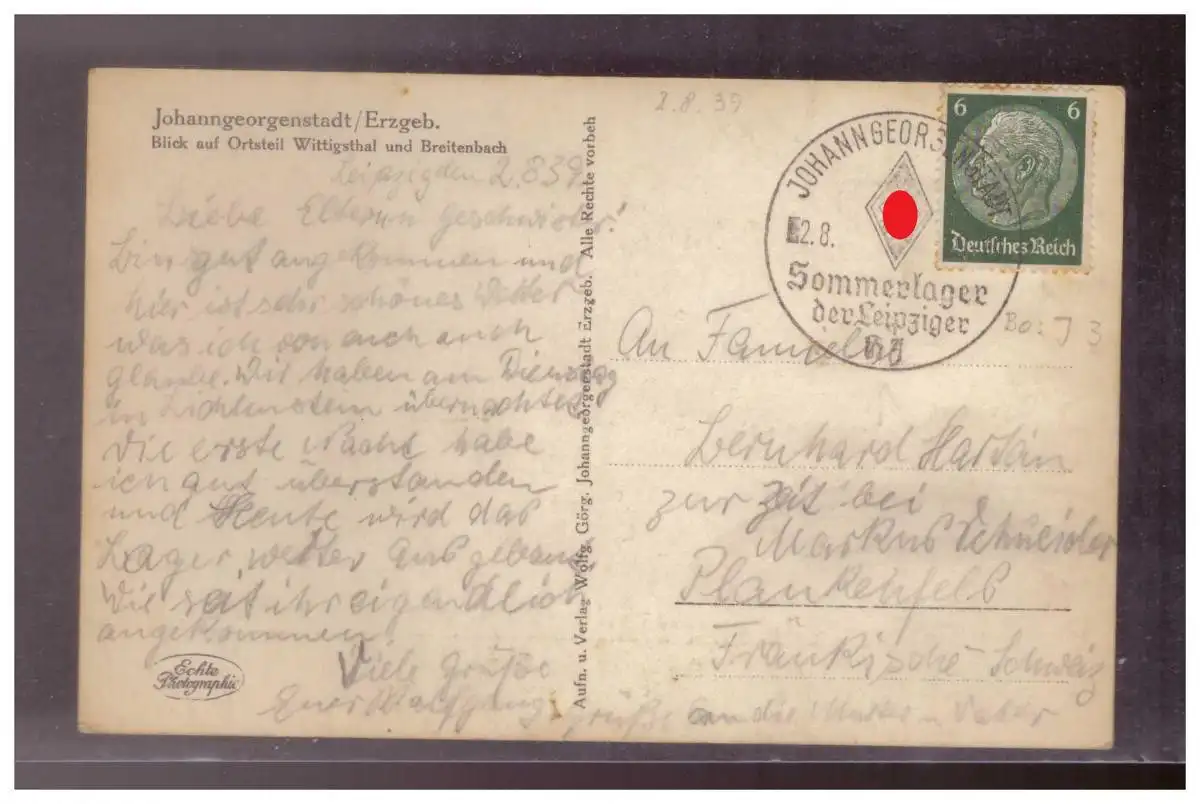 Johanngeorgenstadt/Erzgeb.
Blick auf Ortsteil Wittigsthal und Breitenbach
Leipzig den 2.8 39
Liebe Eltern u Geschwister!
Bin gut angekommen und
hier ist sehr schönes Wetter
was ich von auch auch
glaube. Wir haben am Dienstag
in Lichtenstein übernachtet
Die erste Nacht habe
ich gut überstanden
und Heute wird das
Lager weiter aus gebaut
Wie seit ihr eigendlich
angekommen.
Viele Grüße
Euer Wolfgang
grüße an die Mutter u Vater
Echte
Photographie
Aufn. u. Verlag Wolfg. Görg. Johanngeorgenstadt Erzgeb. Alle Rechte vorbeh
2.8.39
JOHANNGEORGENSTADT
2.8.
Sommerlager
der Leipziger
HJ
6 6
Deutsches Reich
Bo: J 3
An Familie
Bernhard
zur Zeit bei
Markus Schneider
Plankenfels
Fränkische Schweiz